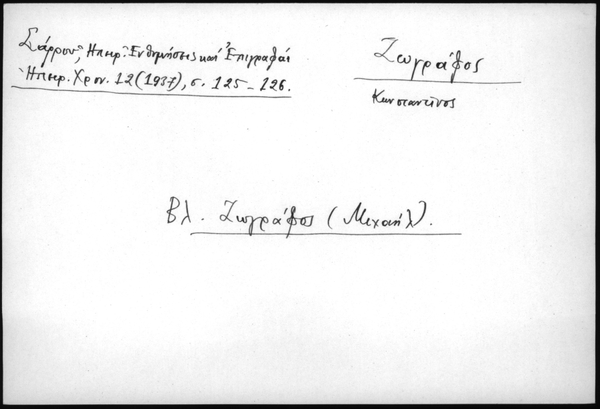 Σάρρου, Ηπειρ. Ἐνθυμήσεις καί Ἐπιγραφαί
Ἠπειρ. Χρον. 12 (1937), σ. 125-126.
Ζωγράφος
Κωνσταντίνος
Βλ. Ζωγράφος (Μιχαήλ).